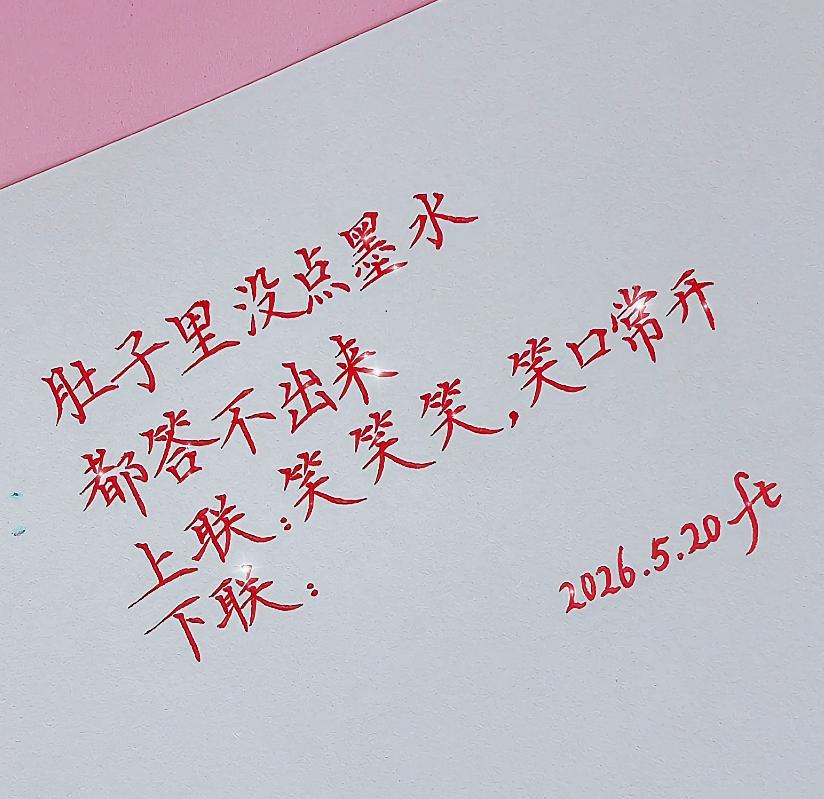 肚子里没点墨水
都答不出来
上联:笑笑笑,笑口常开
下联:
2026.5.20 ft